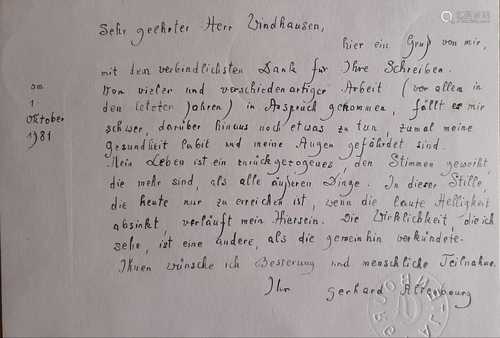 Sehr geehrter Herr Windhausen,
hier ein Gruß von mir,
mit dem verbindlichsten Dank für Ihre Schreiben.
Von vieler und verschiedenartiger Arbeit (vor allem in
den letzten Jahren) in Anspruch genommen, fällt es mir
schwer, darüber hinaus noch etwas zu tun, zumal meine
gesundheit labil und meine Augen gefährdet sind.
Mein Leben ist ein zurückgezogenes, den Stimmen geweiht,
die mehr sind, als alle äußeren Dinge. In dieser Stille,
die heute nur zu erreichen ist, wenn die laute Helligkeit
absinkt, verläuft mein Hiersein. Die Wirklichkeit, die ich
sehe, ist eine andere, als die gemeinhin verkündete.
Ihnen wünsche ich Besserung und menschliche Teilnahme.
Ihr gerhard Altenbourg
am
1
Oktober
1981